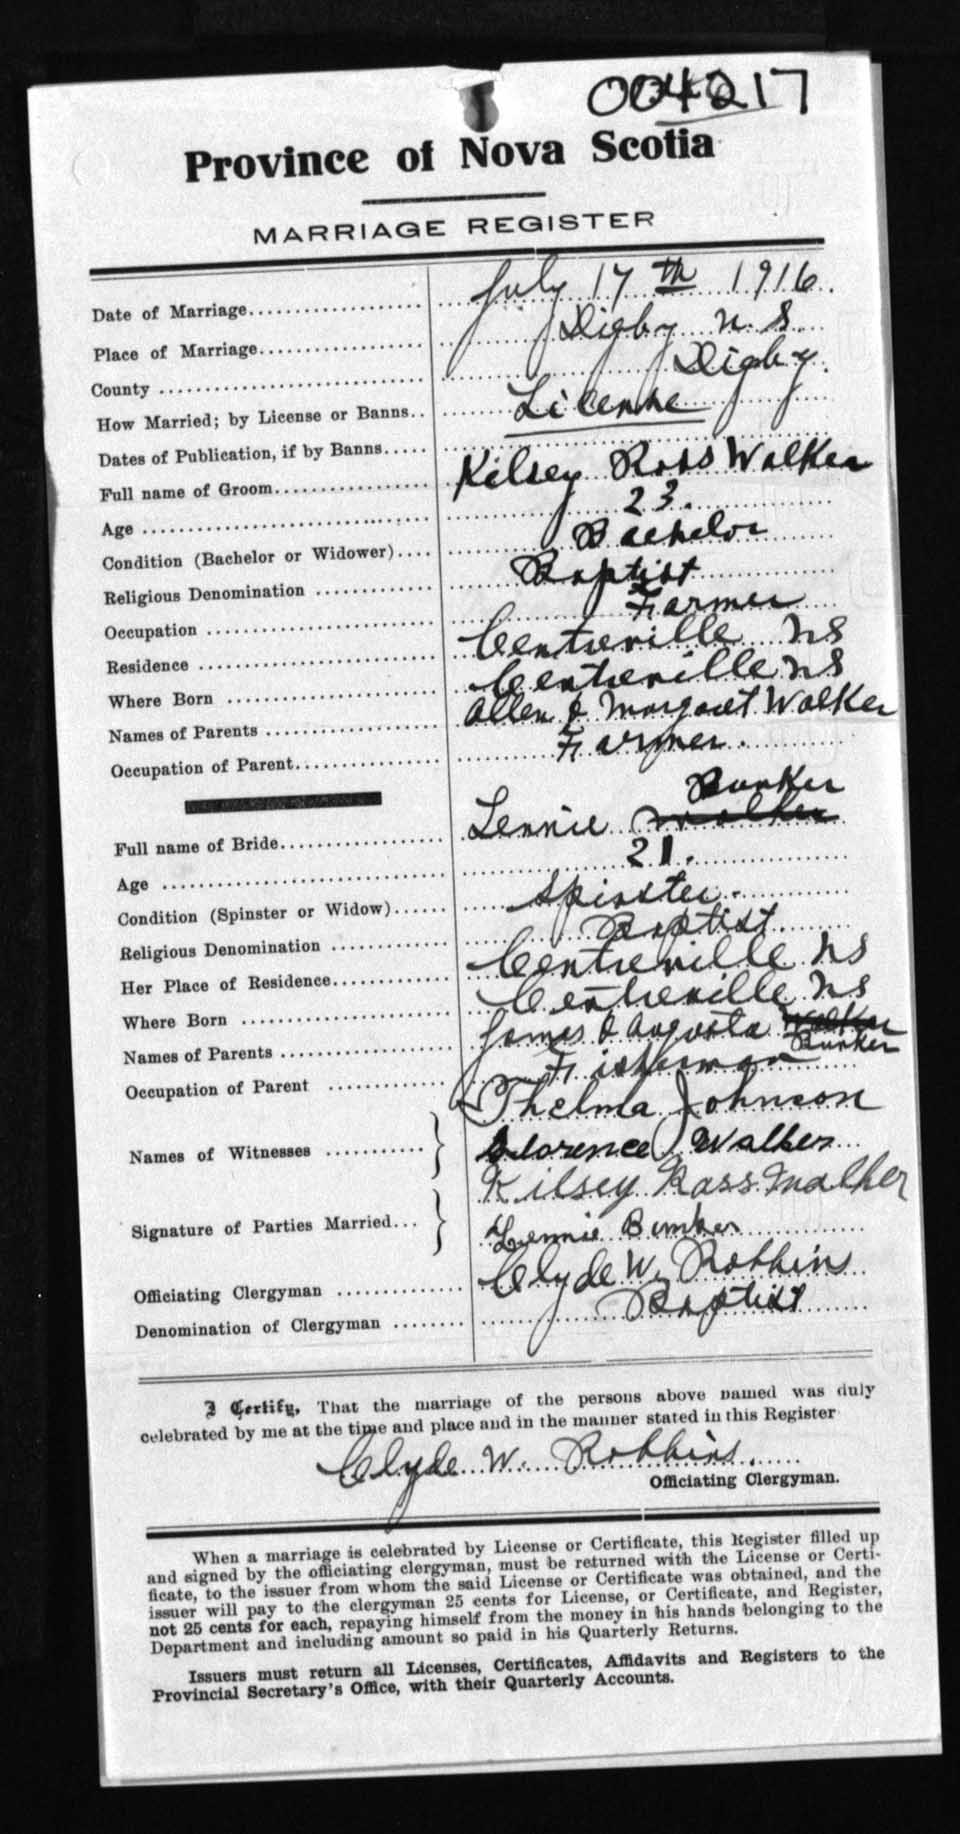 004217
Province of Nova Scotia
MARRIAGE REGISTER
Date of Marriage July 17th 1916.
Place of Marriage Digby N.S.
County Digby.
How Married; by License or Banns License
Dates of Publication, if by Banns
Full name of Groom Kilsey Ross Walker
Age 23.
Condition (Bachelor or Widower) Bachelor
Religious Denomination Baptist
Occupation Farmer
Residence Centreville NS
Where Born Centreville NS
Names of Parents Allen & Margaret Walker
Occupation of Parent Farmer.
Bunker
Full name of Bride Lennie Walker
Age 21.
Condition (Spinster or Widow) Spinster.
Religious Denomination Baptist.
Her Place of Residence Centreville NS
Where Born Centreville NS
Names of Parents James & Augusta Walker
Bunker
Occupation of Parent Fisherman
Thelma Johnson
Names of Witnesses
Florence Walker
Kilsey Ross Walker
Signature of Parties Married
Lennie Bunker
Officiating Clergyman Clyde W. Robbins
Denomination of Clergyman Baptist
I Certify, That the marriage of the persons above named was duly
celebrated by me at the time and place and in the manner stated in this Register
Clyde W. Robbins.
Officiating Clergyman.
When a marriage is celebrated by License or Certificate, this Register filled up
and signed by the officiating clergyman, must be returned with the License or Certi-
ficate, to the issuer from whom the said License or Certificate was obtained, and the
issuer will pay to the clergyman 25 cents for License, or Certificate, and Register,
not 25 cents for each, repaying himself from the money in his hands belonging to the
Department and including amount so paid in his Quarterly Returns.
Issuers must return all Licenses, Certificates, Affidavits and Registers to the
Provincial Secretary's Office, with their Quarterly Accounts.